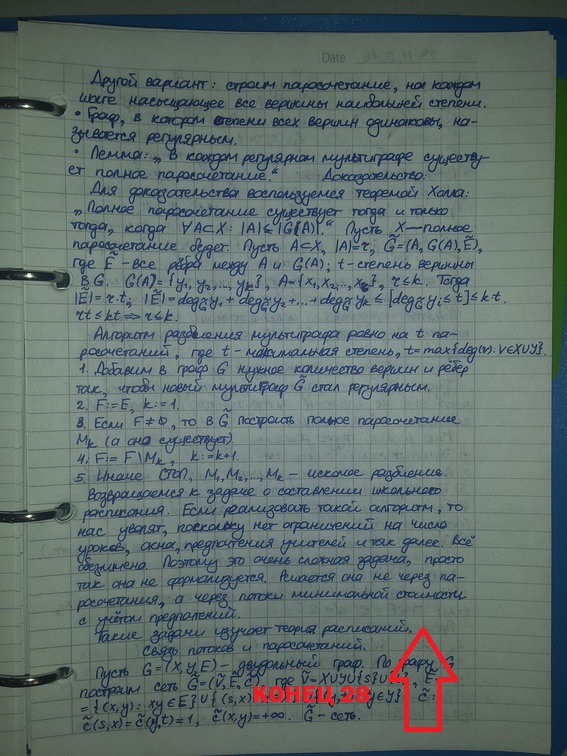 Date
Другой вариант: строим паросочетание, на каждом
шаге насыщающее все вершины наибольшей степени.
• Граф, в котором степени всех вершин одинаковы, на-
зывается регулярным.
• Лемма: „В каждом регулярном мультиграфе существу-
ет полное паросочетание." Доказательство:
Для доказательства воспользуемся теоремой Холла:
„Полное паросочетание существует тогда и только
тогда, когда ∀A⊂X: |A|≤|G(A)|." Пусть X—полное
паросочетание будет. Пусть A⊂X, |A|=r, G̃=(A, G(A), Ẽ),
где Ẽ - все рёбра между A и G(A); t - степень вершины
в G. G(A)={y₁, y₂, ..., yₖ}, A={x₁, x₂, ..., }, r≤k. Тогда
|Ẽ|=r·t; |Ẽ|=deg_G̃ y₁ + deg_G̃ y₂ +...+ deg_G̃ yₖ ≤ [deg_G̃ yᵢ ≤ t] ≤ k·t.
rt≤kt ⇒ r≤k.
Алгоритм разбиения мультиграфа ровно на t па-
росочетаний, где t - максимальная степень, t=max{deg(v): v∈X∪Y}.
1. Добавим в граф G нужное количество вершин и рёбер
так, чтобы новый мультиграф G̃ стал регулярным.
2. F:=Ẽ, k:=1.
3. Если F≠∅, то в G̃ построить полное паросочетание
Mₖ (а оно существует)
4. F:= F\Mₖ, k:=k+1.
5. Иначе СТОП, M₁, M₂, ..., Mₖ - искомое разбиение.
Возвращаемся к задаче о составлении школьного
расписания. Если реализовать такой алгоритм, то
нас уволят, поскольку нет ограничений на число
уроков, окна, предпочтения учителей и так далее. Всё
обезличено. Поэтому это очень сложная задача, просто
так она не формализуется. Решается она не через па-
росочетания, а через потоки минимальной стоимости
с учётом предпочтений.
Такие задачи изучает теория расписаний.
Связь потоков и паросочетаний.
Пусть G=(X,Y,E) - двудольный граф. По графу G
построим сеть G̃=(Ṽ,Ẽ,c̃), где Ṽ=X∪Y∪{s}∪ Ẽ=
={(x,y): xy∈E}∪{(s,x) y∈Y} c̃:
c̃(s,x)=c̃(y,t)=1, c̃(x,y)=+∞. G̃ - сеть.
КОНЕЦ 28